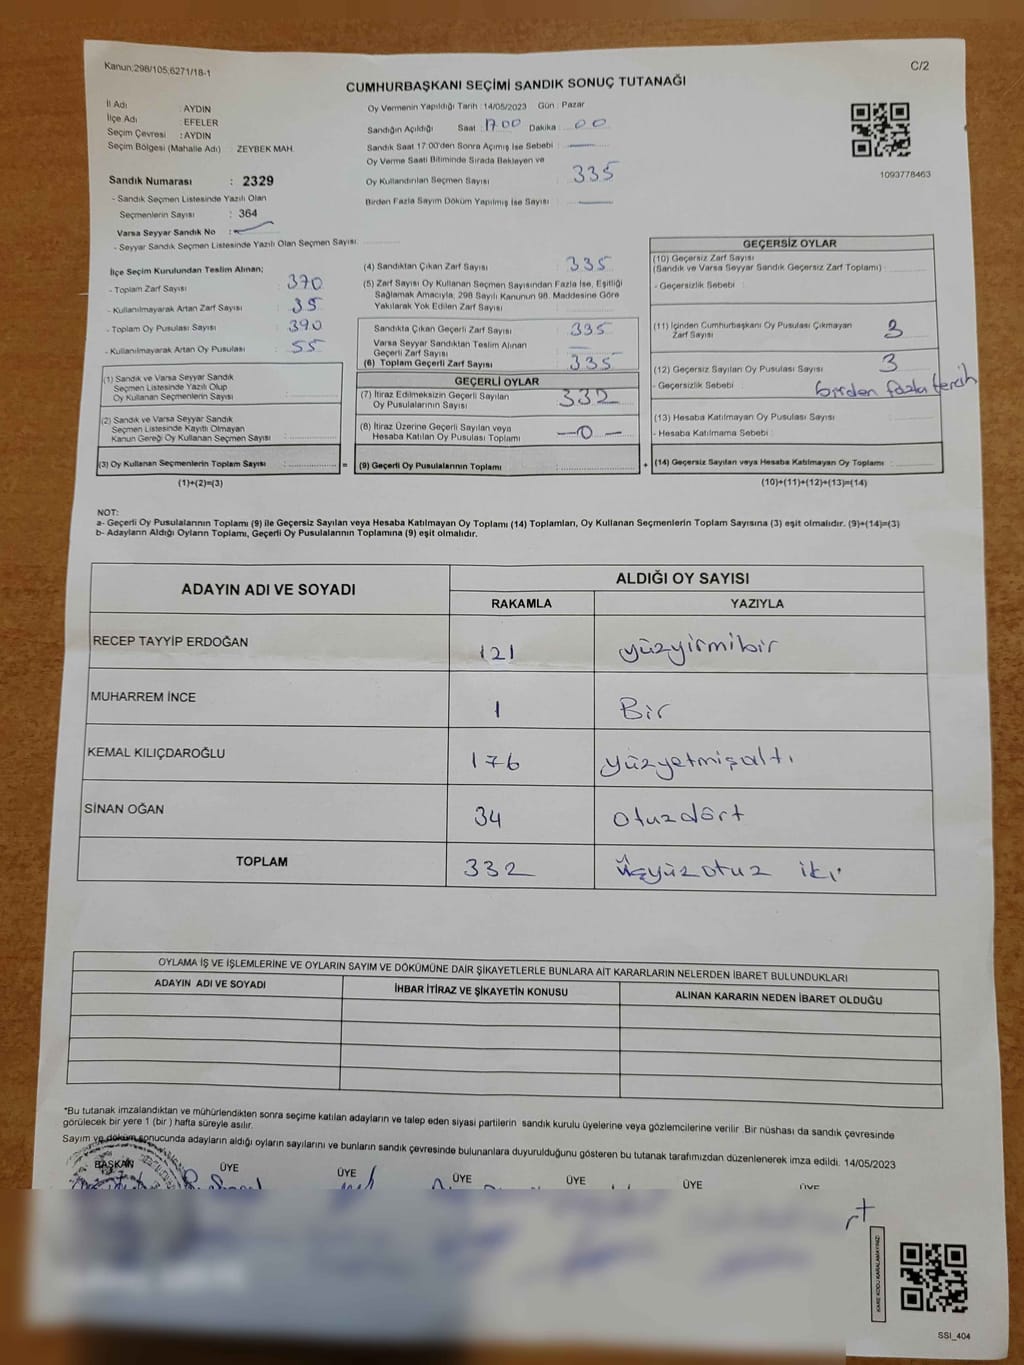 Kanun;298/105;6271/18-1
C/2
CUMHURBAŞKANI SEÇİMİ SANDIK SONUÇ TUTANAĞI
İl Adı : AYDIN
İlçe Adı : EFELER
Seçim Çevresi : AYDIN
Seçim Bölgesi (Mahalle Adı) : ZEYBEK MAH.
Sandık Numarası : 2329
- Sandık Seçmen Listesinde Yazılı Olan
Seçmenlerin Sayısı : 364
Varsa Seyyar Sandık No :
- Seyyar Sandık Seçmen Listesinde Yazılı Olan Seçmen Sayısı:
Oy Vermenin Yapıldığı Tarih : 14/05/2023 Gün : Pazar
Sandığın Açıldığı Saat : 17.00 Dakika : 00
Sandık Saat 17:00'den Sonra Açımış İse Sebebi :
Oy Verme Saati Bitiminde Sırada Bekleyen ve
Oy Kullandırılan Seçmen Sayısı : 335
Birden Fazla Sayım Döküm Yapılmış İse Sayısı :
1093778463
İlçe Seçim Kurulundan Teslim Alınan;
- Toplam Zarf Sayısı : 370
- Kullanılmayarak Artan Zarf Sayısı : 35
- Toplam Oy Pusulası Sayısı : 390
- Kullanılmayarak Artan Oy Pusulası : 55
(1) Sandık ve Varsa Seyyar Sandık
Seçmen Listesinde Yazılı Olup
Oy Kullanan Seçmenlerin Sayısı :
(2) Sandık ve Varsa Seyyar Sandık
Seçmen Listesinde Kayıtlı Olmayan
Kanun Gereği Oy Kullanan Seçmen Sayısı :
(3) Oy Kullanan Seçmenlerin Toplam Sayısı :
(1)+(2)=(3)
=
(4) Sandıktan Çıkan Zarf Sayısı : 335
(5) Zarf Sayısı Oy Kullanan Seçmen Sayısından Fazla İse, Eşitliği
Sağlamak Amacıyla, 298 Sayılı Kanunun 98. Maddesine Göre
Yakılarak Yok Edilen Zarf Sayısı :
Sandıkta Çıkan Geçerli Zarf Sayısı : 335
Varsa Seyyar Sandıktan Teslim Alınan
Geçerli Zarf Sayısı :
(6) Toplam Geçerli Zarf Sayısı : 335
GEÇERLİ OYLAR
(7) İtiraz Edilmeksizin Geçerli Sayılan
Oy Pusulalarının Sayısı : 332
(8) İtiraz Üzerine Geçerli Sayılan veya
Hesaba Katılan Oy Pusulası Toplamı : —0—
(9) Geçerli Oy Pusulalarının Toplamı :
+
GEÇERSİZ OYLAR
(10) Geçersiz Zarf Sayısı
(Sandık ve Varsa Seyyar Sandık Geçersiz Zarf Toplamı) :
- Geçersizlik Sebebi :
(11) İçinden Cumhurbaşkanı Oy Pusulası Çıkmayan
Zarf Sayısı : 3
(12) Geçersiz Sayılan Oy Pusulası Sayısı : 3
- Geçersizlik Sebebi : birden fazla tercih
(13) Hesaba Katılmayan Oy Pusulası Sayısı :
- Hesaba Katılmama Sebebi :
(14) Geçersiz Sayılan veya Hesaba Katılmayan Oy Toplamı :
(10)+(11)+(12)+(13)=(14)
NOT:
a- Geçerli Oy Pusulalarının Toplamı (9) ile Geçersiz Sayılan veya Hesaba Katılmayan Oy Toplamı (14) Toplamları, Oy Kullanan Seçmenlerin Toplam Sayısına (3) eşit olmalıdır. (9)+(14)=(3)
b- Adayların Aldığı Oyların Toplamı, Geçerli Oy Pusulalarının Toplamına (9) eşit olmalıdır.
ADAYIN ADI VE SOYADI
ALDIĞI OY SAYISI
RAKAMLA YAZIYLA
RECEP TAYYİP ERDOĞAN 121 yüzyirmibir
MUHARREM İNCE 1 Bir
KEMAL KILIÇDAROĞLU 176 yüzyetmişaltı
SİNAN OĞAN 34 Otuzdört
TOPLAM 332 Üçyüzotuz iki
OYLAMA İŞ VE İŞLEMLERİNE VE OYLARIN SAYIM VE DÖKÜMÜNE DAİR ŞİKAYETLERLE BUNLARA AİT KARARLARIN NELERDEN İBARET BULUNDUKLARI
ADAYIN ADI VE SOYADI İHBAR İTİRAZ VE ŞİKAYETİN KONUSU ALINAN KARARIN NEDEN İBARET OLDUĞU
*Bu tutanak imzalandıktan ve mühürlendikten sonra seçime katılan adayların ve talep eden siyasi partilerin sandık kurulu üyelerine veya gözlemcilerine verilir. Bir nüshası da sandık çevresinde
görülecek bir yere 1 (bir ) hafta süreyle asılır.
Sayım ve döküm sonucunda adayların aldığı oyların sayılarını ve bunların sandık çevresinde bulunanlara duyurulduğunu gösteren bu tutanak tarafımızdan düzenlenerek imza edildi. 14/05/2023
BAŞKAN ÜYE ÜYE ÜYE ÜYE ÜYE ÜYE
KARE KODU KARALAMAYINIZ!
SSI_404